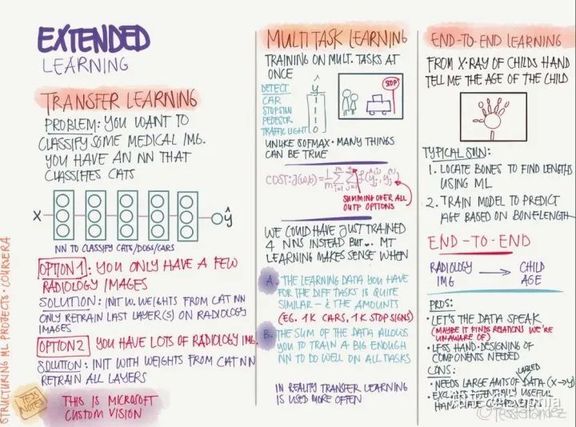 EXTENDED
LEARNING
TRANSFER LEARNING
PROBLEM: YOU WANT TO
CLASSIFY SOME MEDICAL IMG.
YOU HAVE AN NN THAT
CLASSIFIES CATS
X
ŷ
NN TO CLASSIFY CATS/DOGS/CARS
OPTION 1: YOU ONLY HAVE A FEW
RADIOLOGY IMAGES
SOLUTION: INIT W. WEIGHTS FROM CAT NN
ONLY RETRAIN LAST LAYER(S) ON RADIOLOGY
IMAGES
OPTION 2 YOU HAVE LOTS OF RADIOLOGY IMG
SOLUTION: INIT WITH WEIGHTS FROM CAT NN
RETRAIN ALL LAYERS
THIS IS MICROSOFT
CUSTOM VISION
STRUCTURING ML PROJECTS · COURSERA
MULTI TASK LEARNING
TRAINING ON MULT. TASKS AT
ONCE
DETECT
CAR
STOP SIGN
PEDESTR
TRAFFIC LIGHT
ŷ
1
0
STOP
UNLIKE SOFTMAX · MANY THINGS
CAN BE TRUE
COST: J(w,b) =
SUMMING OVER ALL
OUTP OPTIONS
WE COULD HAVE JUST TRAINED
4 NNS INSTEAD BUT... MT
LEARNING MAKES SENSE WHEN
A. THE LEARNING DATA YOU HAVE
FOR THE DIFF TASKS IS QUITE
SIMILAR - & THE AMOUNTS
(EG. 1K CARS, 1K STOP SIGNS)
B. THE SUM OF THE DATA ALLOWS
YOU TO TRAIN A BIG ENOUGH
NN TO DO WELL ON ALL TASKS
IN REALITY TRANSFER LEARNING
IS USED MORE OFTEN
END-TO-END LEARNING
FROM X-RAY OF CHILDS HAND
TELL ME THE AGE OF THE CHILD
TYPICAL SOLN:
1. LOCATE BONES TO FIND LENGTHS
USING ML
2. TRAIN MODEL TO PREDICT
AGE BASED ON BONELENGTH
END-TO-END
RADIOLOGY
IMG
CHILD
AGE
PROS:
· LET'S THE DATA SPEAK
(MAYBE IT FINDS RELATIONS WE'RE
UNAWARE OF)
· LESS HAND-DESIGNING OF
COMPONENTS NEEDED
CONS:
LABLED
· NEEDS LARGE AMTS OF DATA (X→Y)
· EXCLUDES POTENTIALLY USEFUL
HAND-MADE COMPONENTS